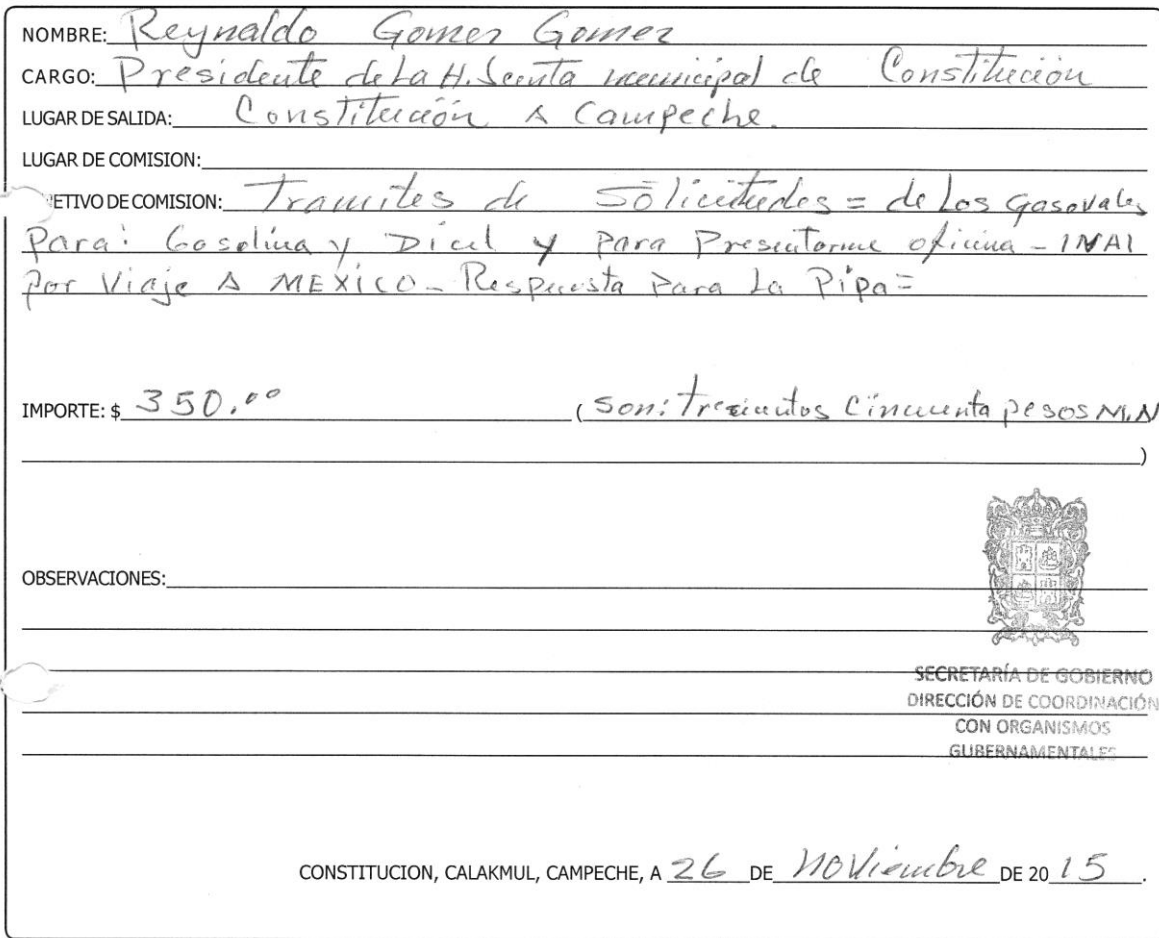 NOMBRE: Reynaldo Gomez Gomez
CARGO: Presidente de La H. Junta municipal de Constitución
LUGAR DE SALIDA: Constitución A Campeche.
LUGAR DE COMISION:
ETIVO DE COMISION: Tramites de Solicitudes = de Los Gasovales
Para: Gasolina y Dicel y Para Presentarme oficina - INAI
por Viaje A MEXICO - Respuesta Para La Pipa =
IMPORTE: $ 350.00 (Son: Trescientos Cincuenta pesos M.N
)
OBSERVACIONES:
SECRETARÍA DE GOBIERNO
DIRECCIÓN DE COORDINACIÓN
CON ORGANISMOS
GUBERNAMENTALES
CONSTITUCION, CALAKMUL, CAMPECHE, A 26 DE Noviembre DE 20 15.